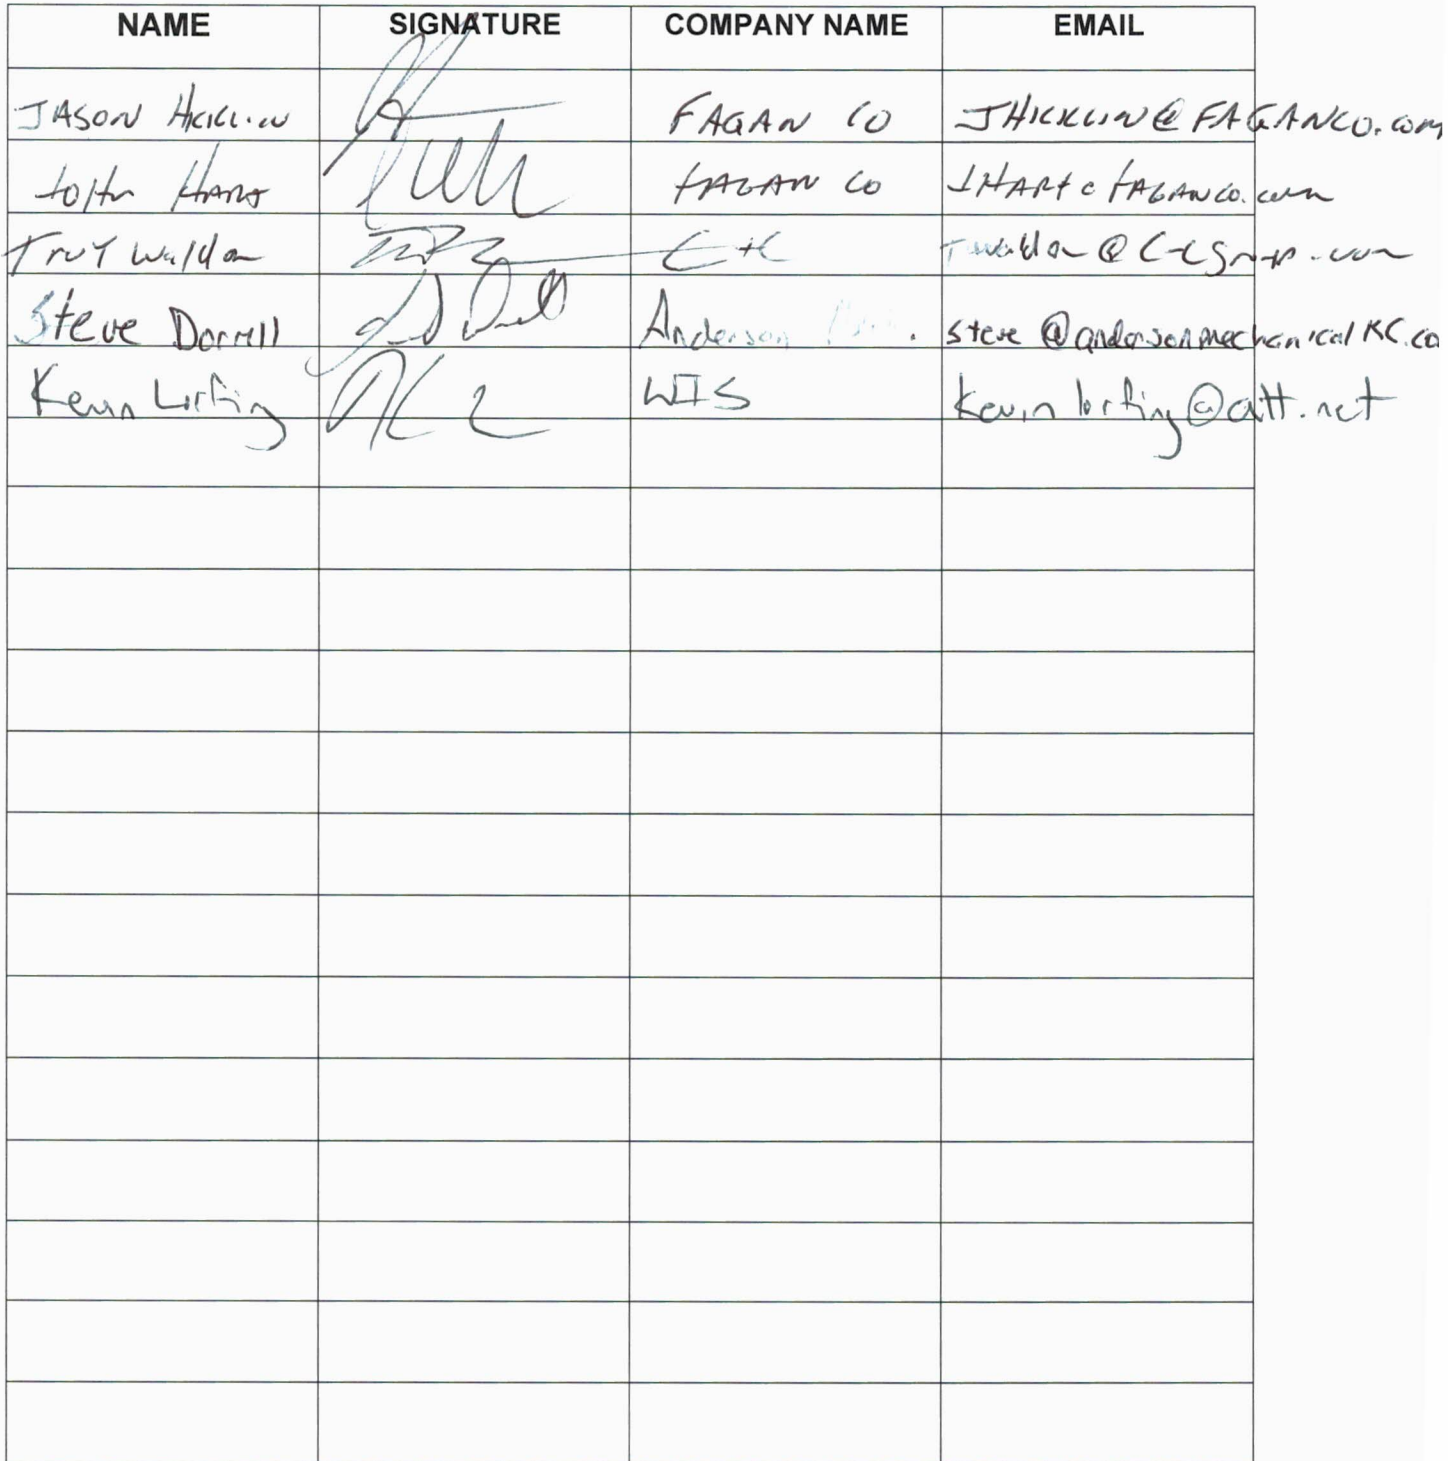 NAME SIGNATURE COMPANY NAME EMAIL
JASON HICKLIN FAGAN CO JHICKLIN@FAGANCO.com
JOHN HART FAGAN CO JHART@FAGANCO.com
Troy Waldon C+C
Steve Dorrell Anderson steve@andersonmechanicalKC.co
Kevin Lorfing WIS kevinlorfing@att.net